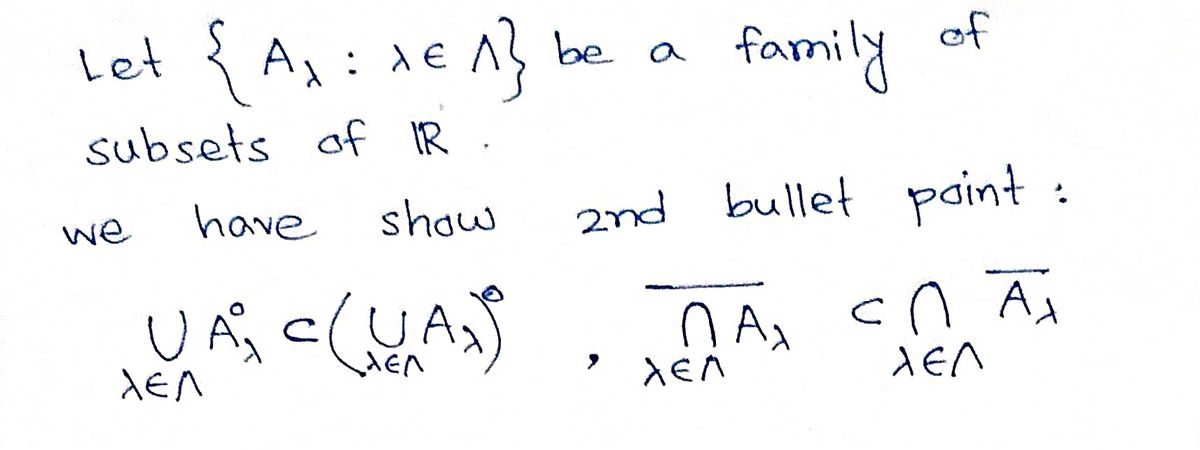 Let { A_λ : λ ∈ Λ } be a family of
subsets of ℝ .
we have show 2nd bullet point :
⋃_{λ∈Λ} A°_λ ⊂ (⋃_{λ∈Λ} A_λ)° , \overline{⋂_{λ∈Λ} A_λ} ⊂ ⋂_{λ∈Λ} \overline{A_λ}